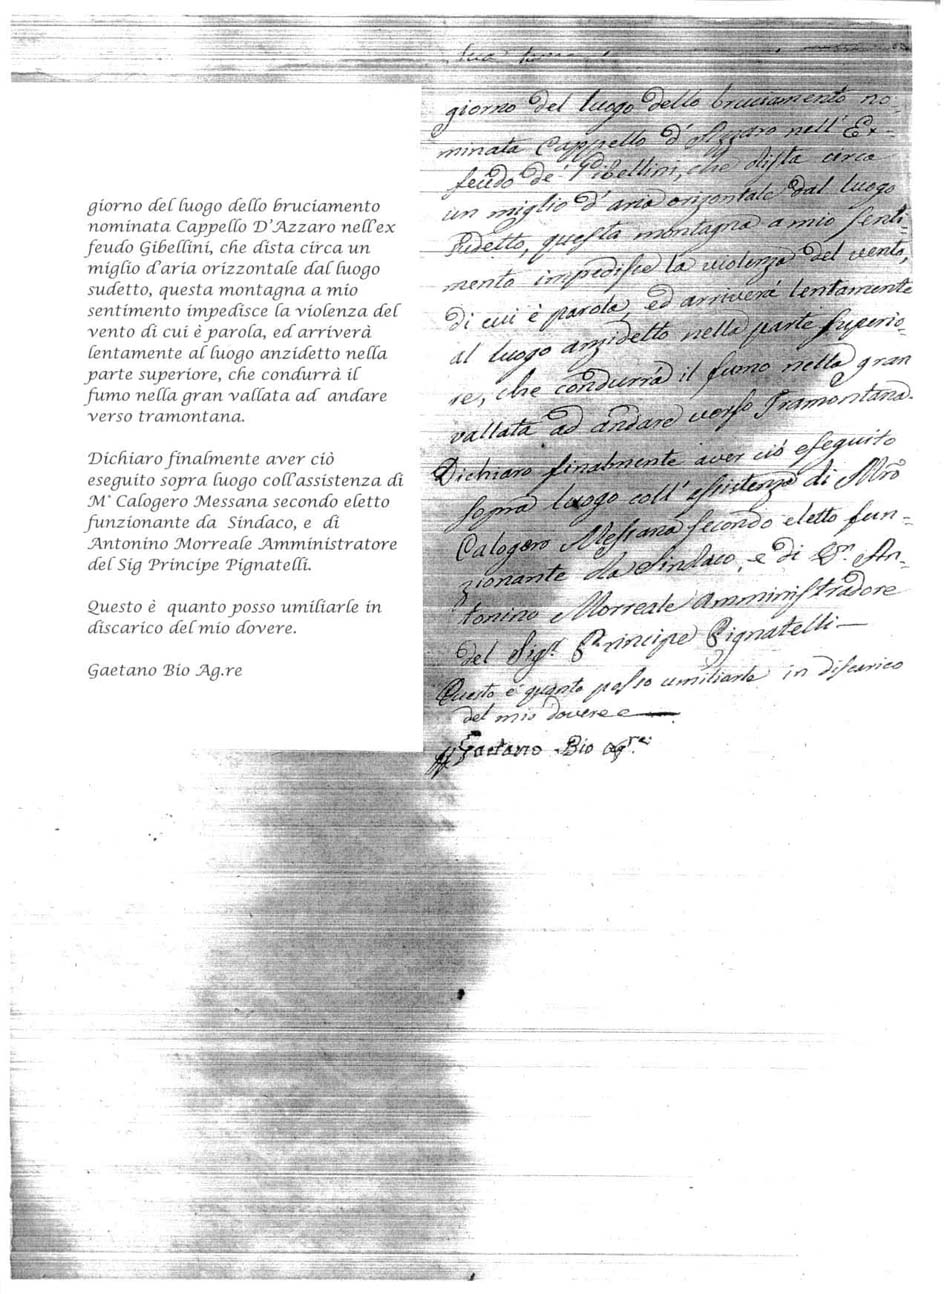 giorno del luogo dello bruciamento
nominata Cappello D'Azzaro nell'ex
feudo Gibellini, che dista circa un
miglio d'aria orizzontale dal luogo
sudetto, questa montagna a mio
sentimento impedisce la violenza del
vento di cui è parola, ed arriverà
lentamente al luogo anzidetto nella
parte superiore, che condurrà il
fumo nella gran vallata ad andare
verso tramontana.
Dichiaro finalmente aver ciò
eseguito sopra luogo coll'assistenza di
M° Calogero Messana secondo eletto
funzionante da Sindaco, e di
Antonino Morreale Amministratore
del Sig Principe Pignatelli.
Questo è quanto posso umiliarle in
discarico del mio dovere.
Gaetano Bio Ag.re
giorno del luogo dello bruciamento no-
minata Cappello d'Azzaro nell'Ex-
feudo de' Gibellini, che dista circa
un miglio d'aria orizontale dal luogo
sudetto, questa montagna a mio senti-
mento impedisce la violenza del vento,
di cui è parola, ed arriverà lentamente
al luogo anzidetto nella parte superio-
re, che condurrà il fumo nella gran
vallata ad andare verso Tramontana.
Dichiaro finalmente aver ciò eseguito
sopra luogo coll'assistenza di Mro
Calogero Messana secondo eletto fun-
zionante da Sindaco, e di Dn. An-
tonino Morreale Amministradore
del Sigr. Principe Pignatelli—
Questo è quanto posso umiliarle in discarico
del mio dovere—
Gaetano Bio Agre: